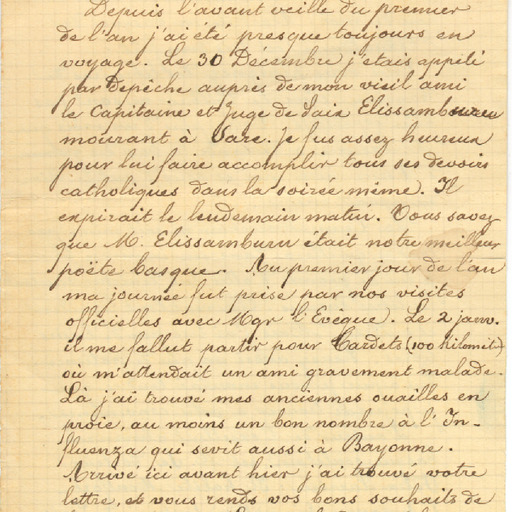 Depuis l'avant veille du premier
de l'an j'ai été presque toujours en
voyage. Le 30 Décembre j'etais appelé
par Depêche auprès de mon vieil ami
le Capitaine et Juge de Paix Elissambourou
mourant à Sare. Je fus assez heureux
pour lui faire accomplir tous ses devoirs
catholiques dans la soirée même. Il
expirait le lendemain matin. Vous savez
que M. Elissamburu était notre meilleur
poëte basque. Au premier jour de l'an
ma journée fut prise par nos visites
officielles avec Mgr l'Evêque. Le 2 janv.
il me fallut partir pour Tardets (100 kilomèt)
où m'attendait un ami gravement malade.
Là j'ai trouvé mes anciennes ouailles en
proie, au moins un bon nombre à l'In-
fluenza qui sevit aussi à Bayonne.
Arrivé ici avant hier j'ai trouvé votre
lettre, et vous rends vos bons souhaits de